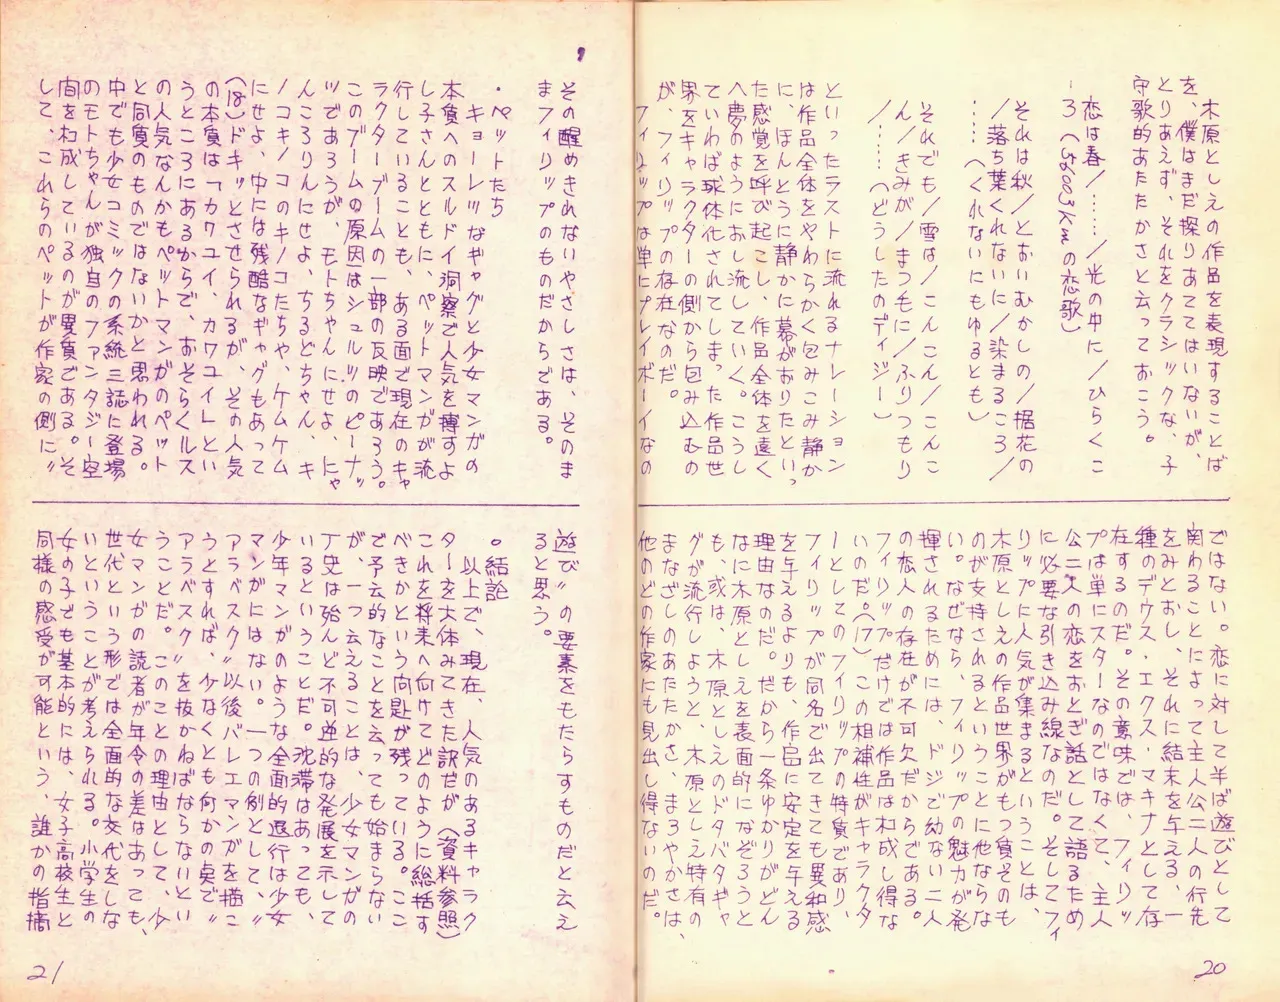 木原としえの作品を表現することば
を、僕はまだ探りあててはいないが、
とりあえず、それをクラシックな、子
守歌的あたたかさと云っておこう。
恋は春／……／光の中に／ひらくこ
ろ（56003Kmの恋歌）
それは秋／とおいむかしの／据花の
／落ち葉くれないに／染まるころ／
……（くれないにもゆるとも）
それでも／雪は／こんこん／こんこ
ん／きみが／まつ毛に／ふりつもり
／……（どうしたのデイジー）
といったラストに流れるナレーション
は作品全体をやわらかく包みこみ静か
に、ほんとうに静かに幕がおりたといっ
た感覚を呼び起こし、作品全体を遠く
へ夢のようにおし流していく。こうし
ていわば球体化されてしまった作品世
界をキャラクターの側から包み込むの
が、フィリップの存在なのだ。
フィリップは単にプレイボーイなの
ではない。恋に対して半ば遊びとして
関わることによって主人公二人の行先
をみとおし、それに結末を与える、一
種のデウス・エクス・マキナとして存
在するのだ。その意味では、フィリッ
プは単にスターなのではなくて、主人
公二人の恋をおとぎ話として語るため
に必要な引き込み線なのだ。そしてフィ
リップに人気が集まるということは、
木原としえの作品世界がもつ質そのも
のが支持されるということに他ならな
い。なぜなら、フィリップの魅力が発
揮されるためには、ドジで幼ない二人
の恋人の存在が不可欠だからである。
フィリップだけでは作品は構成し得な
いのだ。（17）この相補性がキャラクタ
ーとしてのフィリップの特質であり、
フィリップが同名で出てきても異和感
を与えるよりも、作品に安定を与える
理由なのだ。だから一条ゆかりがどん
なに木原としえを表面的になぞろうと
も、或は、木原としえのドタバタギャ
グが流行しようと、木原としえ特有の
まなざしのあたたかさ、まろやかさは、
他のどの作家にも見出し得ないのだ。
20
その醒めきれないやさしさは、そのま
まフィリップのものだからである。
・ペットたち
キョーレツなギャグと少女マンガの
本質へのスルドイ洞察で人気を博すよ
し子さんとともに、ペットマンガが流
行していることも、ある面で現在のキャ
ラクターブームの一部の反映であろう。
このブームの原因はシュルツのピーナッ
ツであろうが、モトちゃんにせよ、にゃ
んころりんにせよ、ちるどちゃん、キ
ノコキノコのキノコたちや、ケムケム
にせよ、中には残酷なギャグもあって
（18）ドキッとさせられるが、その人気
の本質は「カワユイ、カワユイ」とい
うところにあるからで、おそらくルス
の人気なんかもペットマンガのペット
と同質のものではないかと思われる。
中でも少女コミックの系統三誌に登場
のモトちゃんが独自のファンタジー空
間を構成しているのが異質である。そ
して、これらのペットが作家の側に〃
遊び〃の要素をもたらすものだと云え
ると思う。
○結論
以上で、現在、人気のあるキャラク
ターを大体みてきた訳だが（資料参照）
これを将来へ向けてどのように総括す
べきかという問題が残っている。ここ
で予言的なことを云っても始まらない
が、一つ云えることは、少女マンガの
丁史は殆んど不可逆的な発展を示して
いるということだ。沈滞はあっても、
少年マンガのような全面的退行は少女
マンガにはない。一つの例として、〃
アラベスク〃以後バレエマンガを描こ
うとすれば、少なくとも何かの点で〃
アラベスク〃を抜かねばならないとい
うことだ。このことの理由として、少
女マンガの読者が年令の差はあっても、
世代という形では全面的な交代をしな
いということが考えられる。小学生の
女の子でも基本的には、女子高校生と
同様の感受が可能という、誰かの指摘
21